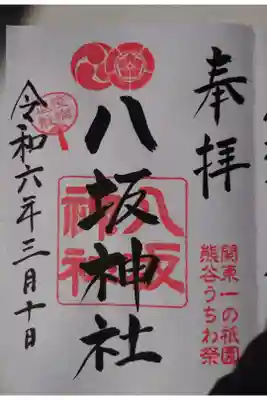 奉拝
関東一の祇園
熊谷うちわ祭
八坂神社
八坂
神社
令和六年三月十日